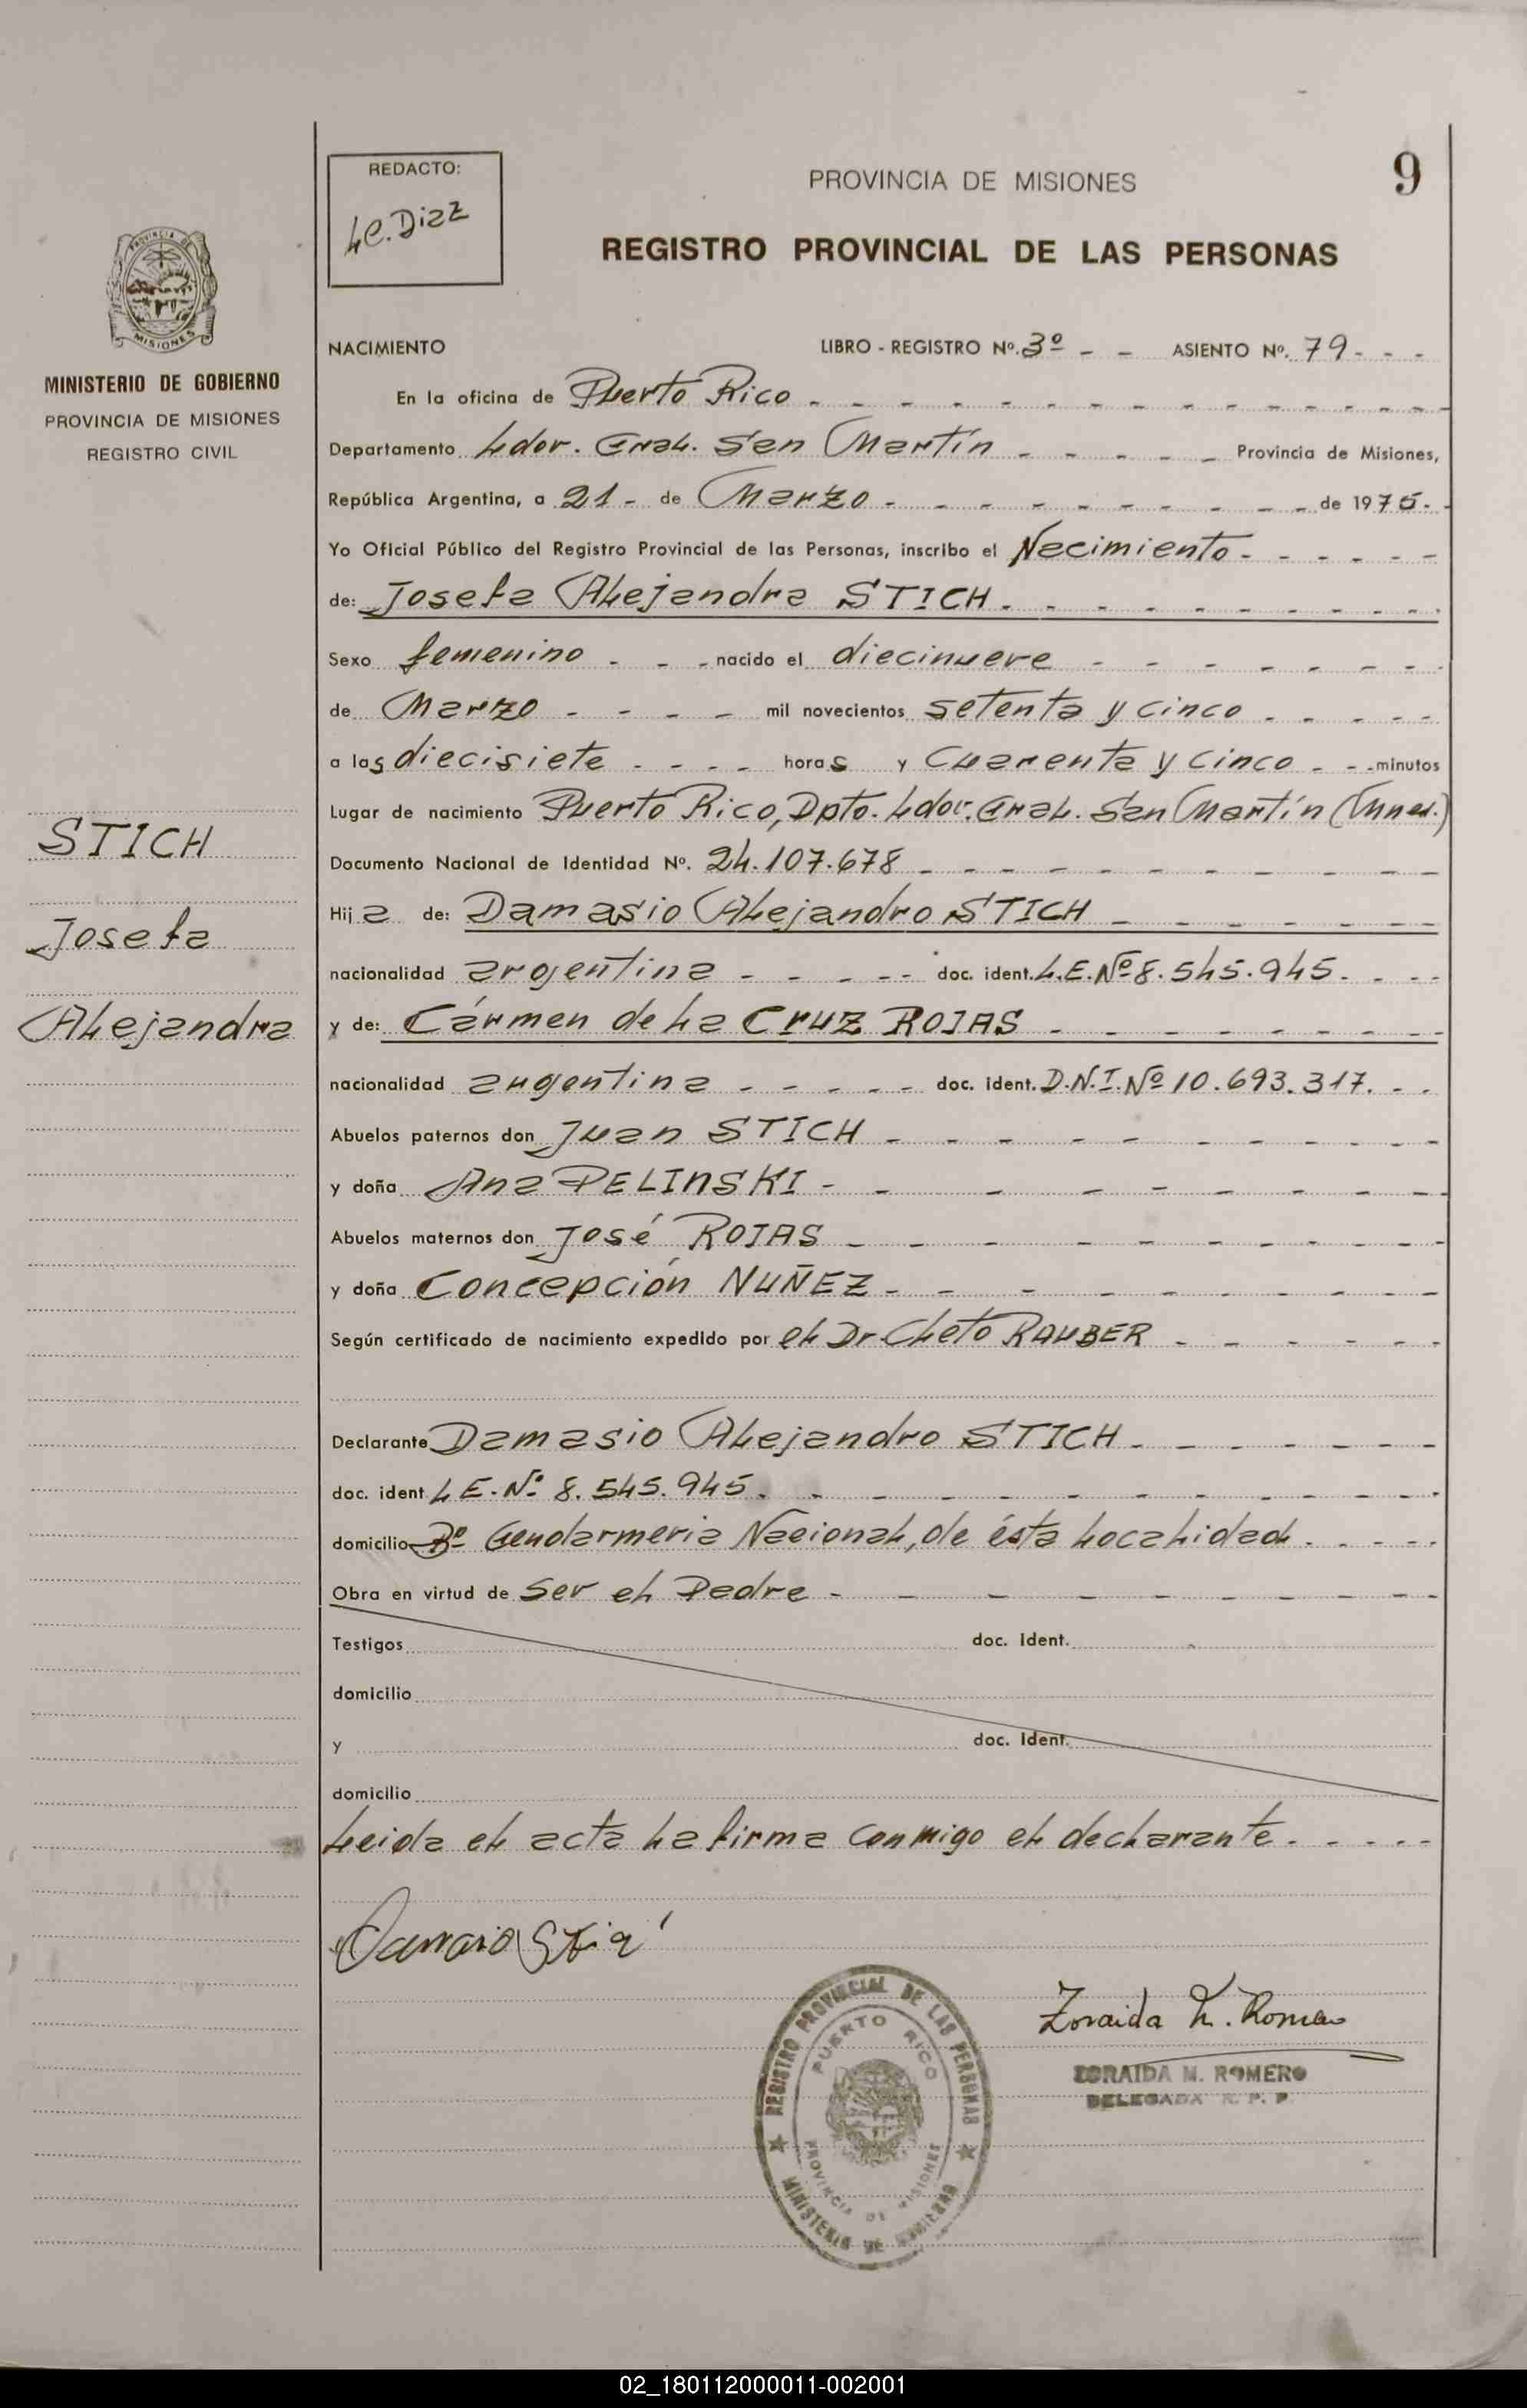 REDACTO:
L.C. Diaz
PROVINCIA DE MISIONES
9
REGISTRO PROVINCIAL DE LAS PERSONAS
PROVINCIA DE
MISIONES
MINISTERIO DE GOBIERNO
PROVINCIA DE MISIONES
REGISTRO CIVIL
NACIMIENTO LIBRO - REGISTRO Nº. 3º - - ASIENTO Nº. 79 - - -
En la oficina de Puerto Rico
Departamento Ldor. Gral. San Martín Provincia de Misiones,
República Argentina, a 21 - de Marzo de 1975.
Yo Oficial Público del Registro Provincial de las Personas, inscribo el Nacimiento
de: Josefa Alejandra STICH
Sexo femenino nacido el diecinueve
de Marzo mil novecientos setenta y cinco
a las diecisiete horas y Cuarenta y cinco minutos
Lugar de nacimiento Puerto Rico, Dpto. Ldor. Gral. San Martín (Mnes.)
Documento Nacional de Identidad Nº. 24.107.678
Hija de: Damasio Alejandro STICH
nacionalidad argentina doc. ident. L.E. Nº 8.545.945.
y de: Cármen de la Cruz ROJAS
nacionalidad argentina doc. ident. D.N.I. Nº 10.693.317.
Abuelos paternos don Juan STICH
y doña Ana PELINSKI
Abuelos maternos don José ROJAS
y doña Concepción NUÑEZ
Según certificado de nacimiento expedido por el Dr. Cleto RAUBER
Declarante Damasio Alejandro STICH
doc. ident L.E. Nº 8.545.945.
domicilio Bº Gendarmeria Nacional, de ésta localidad.
Obra en virtud de ser el Padre
Testigos doc. ident.
domicilio
y doc. ident.
domicilio
Leida el acta la firma conmigo el declarante.
STICH
Josefa
Alejandra
Zoraida M. Romero
ZORAIDA M. ROMERO
DELEGADA R. P. P.
REGISTRO PROVINCIAL DE LAS PERSONAS
PUERTO RICO
PROVINCIA DE MISIONES
MINISTERIO DE GOBIERNO
02_180112000011-002001